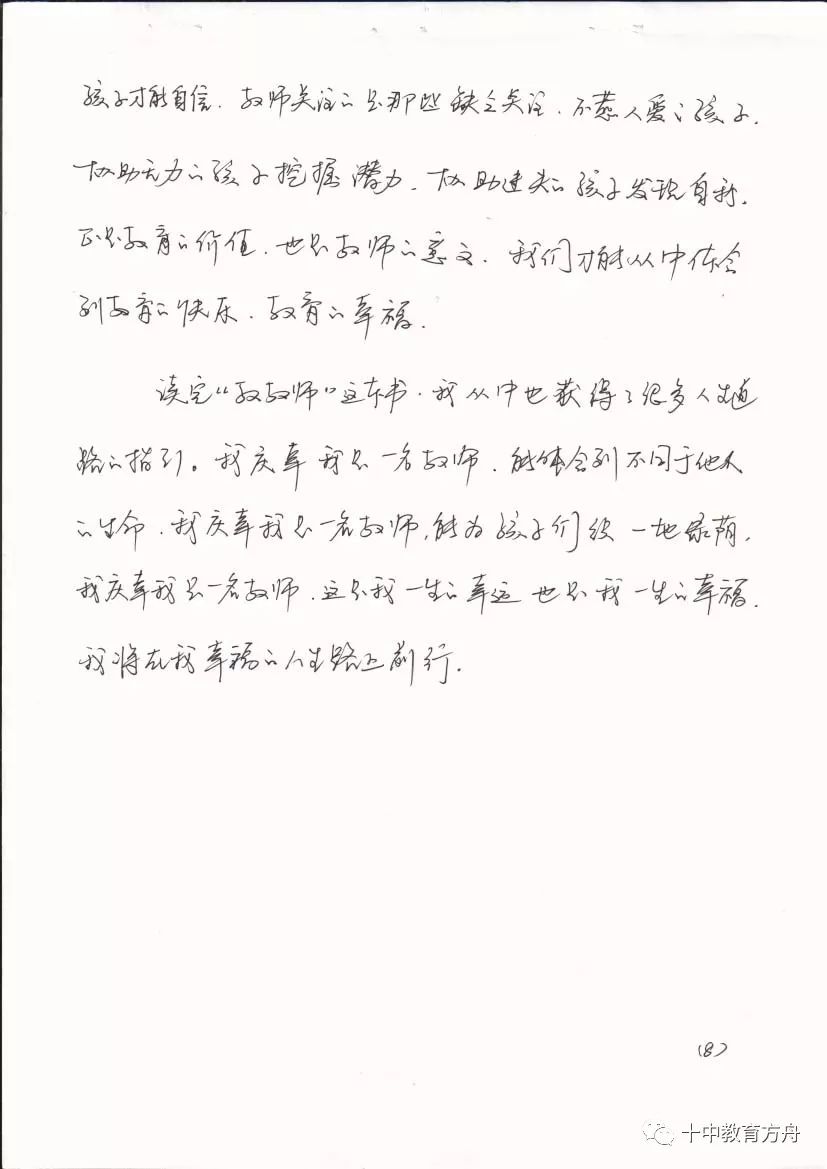 孩子才能自信。教师关注的是那些缺乏关注、不惹人爱的孩子,
协助无力的孩子挖掘潜力,协助迷失的孩子发现自我,
正是教育的价值,也是教师的意义,我们才能从中体会
到教育的快乐,教育的幸福。
读完“教教师”这本书,我从中也获得了很多人生道
路的指引。我庆幸我是一名教师,能体会到不同于他人
的生命,我庆幸我是一名教师,能为孩子们 一地绿荫,
我庆幸我是一名教师,这是我一生的幸运也是我一生的幸福,
我将在我幸福的人生路上前行。
(8)
十中教育方舟